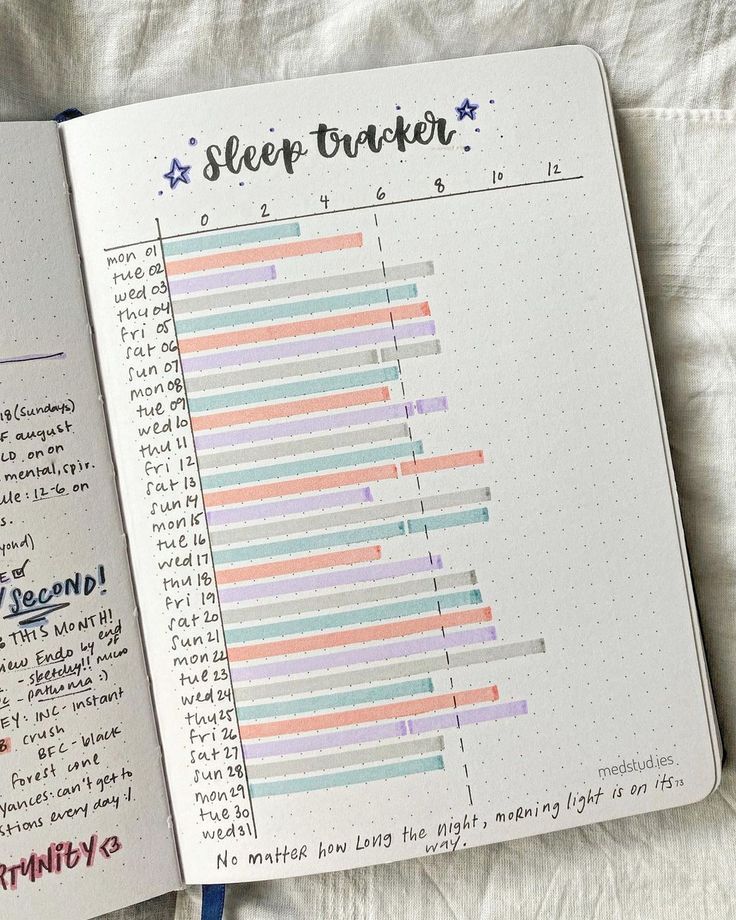 18 (sundays)
august
on on
mental, spir.
ule: 12-6 on
s.
yond)
SECOND!
THIS MONTH!
view Endo by end
of
- sketchy!! micro
- pathoma :)
EY: INC - instant
crush
BFC - black
forest cone
yances: can't get to
stions every day :/
RTUNITY <3
sleep tracker
0 2 4 6 8 10 12
mon 01
tue 02
wed 03
thu 04
fri 05
sat 06
sun 07
mon 08
tue 09
wed 10
thu 11
fri 12
sat 13
sun 14
mon 15
tue 16
wed 17
thu 18
fri 19
sat 20
sun 21
mon 22
tue 23
wed 24
thu 25
fri 26
sat 27
sun 28
mon 29
tue 30
wed 31
medstud.ies
No matter how long the night, morning light is on its
way.
73